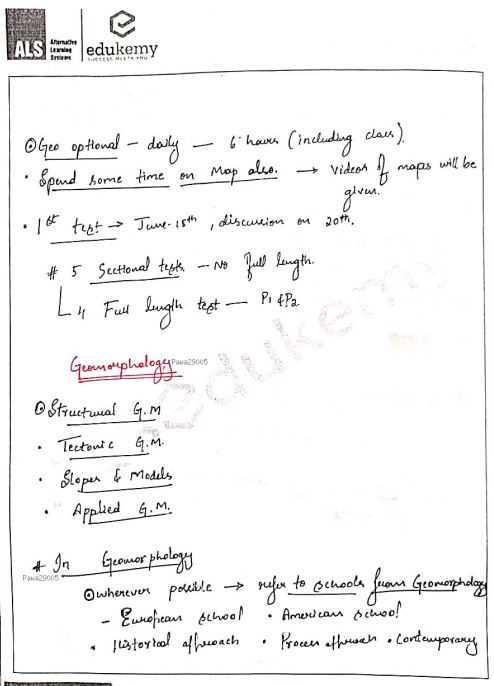 ALS Alternative Learning Systems
edukemy
SUCCESS MEETS YOU
Geo optional - daily — 6 hours (including class).
• Spend some time on Map also. → Videos of maps will be
given.
• 1st test → June-18th, discussion on 20th.
# 5 Sectional tests. — No full length.
4 Full length test — P1 & P2
edukemy
Geomorphology
Pawa29005
Structural G.M
• Tectonic G.M.
• Slopes & Models
• Applied G.M.
# In Geomorphology
Pawa29005
wherever possible → refer to schools from Geomorphology
- European school • American school
• Historical approach • Process approach • Contemporary